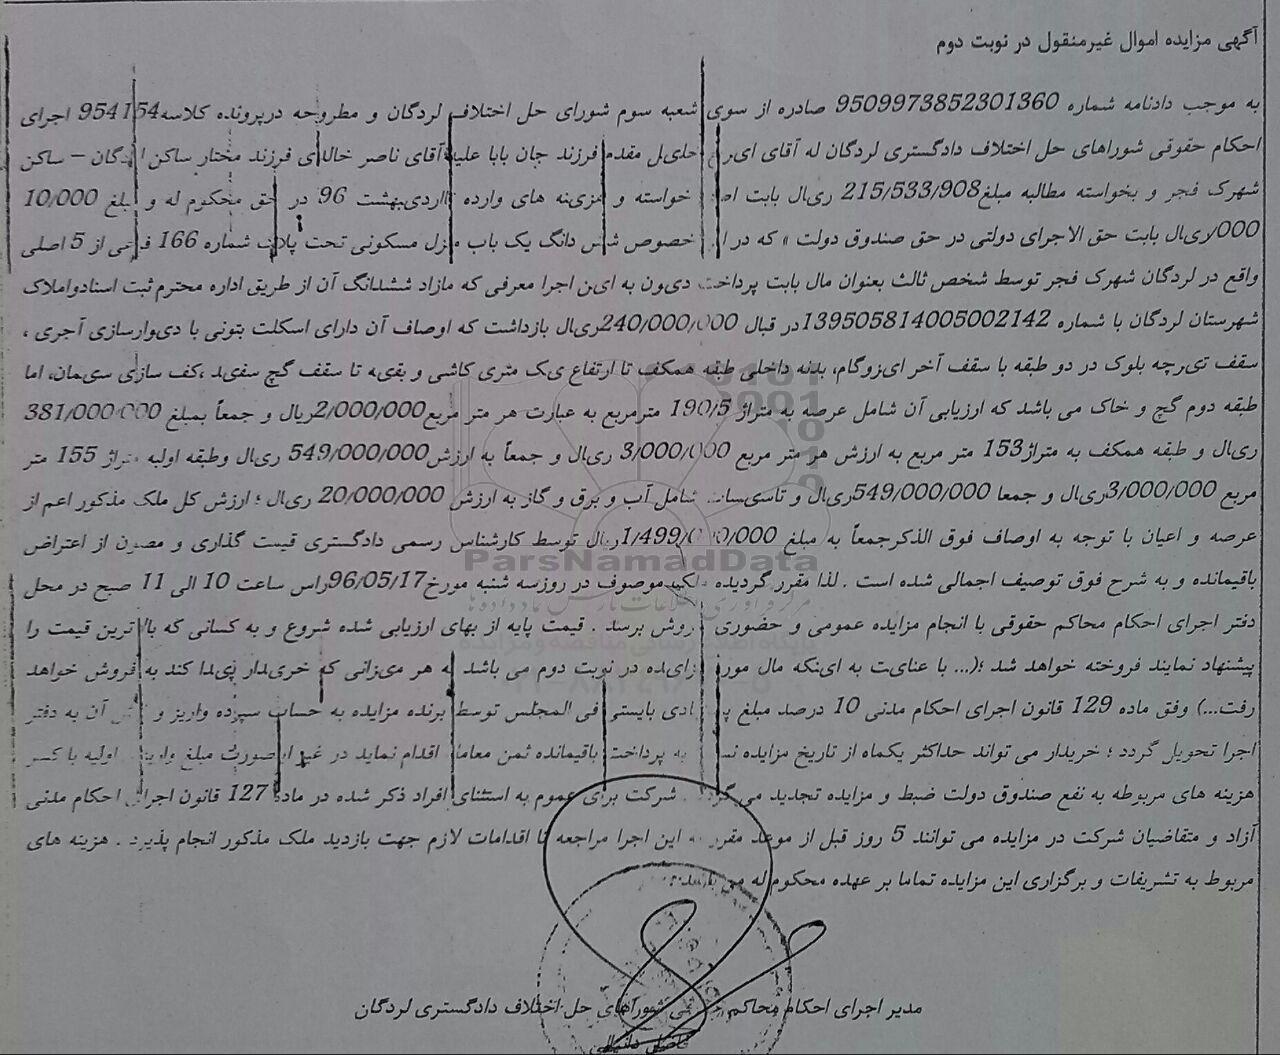 آگهی مزایده اموال غیرمنقول در نوبت دوم
به موجب دادنامه شماره 9509973852301360 صادره از سوی شعبه سوم شورای حل اختلاف لردگان و مطروحه درپرونده کلاسه 954154 اجرای
احکام حقوقی شوراهای حل اختلاف دادگستری لردگان له آقای ایرج خلیل مقدم فرزند جان بابا علیه آقای ناصر خالدی فرزند مختار ساکن لردگان – ساکن
شهرک فجر و بخواسته مطالبه مبلغ 215/533/908 ریال بابت اصل خواسته و هزینه های وارده تا اردیبهشت 96 در حق محکوم له و مبلغ 10/000
/000ریال بابت حق الاجرای دولتی در حق صندوق دولت » که در این خصوص شش دانگ یک باب منزل مسکونی تحت پلاک شماره 166 فرعی از 5 اصلی
واقع در لردگان شهرک فجر توسط شخص ثالث بعنوان مال بابت پرداخت دیون به این اجرا معرفی که مازاد ششدانگ آن از طریق اداره محترم ثبت اسنادواملاک
شهرستان لردگان با شماره 139505814005002142در قبال 240/000/000ریال بازداشت که اوصاف آن دارای اسکلت بتونی با دیوارسازی آجری ،
سقف تیرچه بلوک در دو طبقه با سقف آخر ایزوگام، بدنه داخلی طبقه همکف تا ارتفاع یک متری کاشی و بقیه تا سقف گچ سفید ،کف سازی سیمان، اما
طبقه دوم گچ و خاک می باشد که ارزیابی آن شامل عرصه به متراژ 190/5 مترمربع به عبارت هر متر مربع2/000/000ریال و جمعاً بمبلغ 381/000/000
ریال و طبقه همکف به متراژ153 متر مربع به ارزش هر متر مربع 3/000/000 ریال و جمعاً به ارزش549/000/000 ریال وطبقه اولبه متراژ 155 متر
مربع 3/000/000ریال و جمعا 549/000/000ریال و تاسیسات شامل آب و برق و گاز به ارزش 20/000/000 ریال ؛ ارزش کل ملک مذکور اعم از
عرصه و اعیان با توجه به اوصاف فوق الذکرجمعاً به مبلغ 1/499/000/000ریال توسط کارشناس رسمی دادگستری قیمت گذاری و مصون از اعتراض
باقیمانده و به شرح فوق توصیف اجمالی شده است . لذا مقرر گردیده ملکیدموصوف در روزسه شنبه مورخ96/05/17راس ساعت 10 الی 11 صبح در محل
دفتر اجرای احکام محاکم حقوقی با انجام مزایده عمومی و حضوری بفروش برسد . قیمت پایه از بهای ارزیابی شده شروع و به کسانی که بالاترین قیمت را
پیشنهاد نمایند فروخته خواهد شد ؛(... با عنایت به اینکه مال مورد مزایده در نوبت دوم می باشد به هر میزانی که خریدار پیدا کند به فروش خواهد
رفت...) وفق ماده 129 قانون اجرای احکام مدنی 10 درصد مبلغ پیشنهادی بایستی فی المجلس توسط برنده مزایده به حساب سپرده واریز و فیش آن به دفتر
اجرا تحویل گردد ؛ خریدار می تواند حداکثر یکماه از تاریخ مزایده نسبت به پرداخت باقیمانده ثمن معامله اقدام نماید در غیر اینصورت مبلغ واریزی اولیه با کسر
هزینه های مربوطه به نفع صندوق دولت ضبط و مزایده تجدید می گردد . شرکت برای عموم به استثنای افراد ذکر شده در ماده 127 قانون اجرای احکام مدنی
آزاد و متقاضیان شرکت در مزایده می توانند 5 روز قبل از موعد مقرر به این اجرا مراجعه تا اقدامات لازم جهت بازدید ملک مذکور انجام پذیرد . هزینه های
مربوط به تشریفات و برگزاری این مزایده تماما بر عهده محکوم له می باشد.
مدیر اجرای احکام محاکم حقوقی شوراهای حل اختلاف دادگستری لردگان
فاضل دانیالی
ParsNamadData